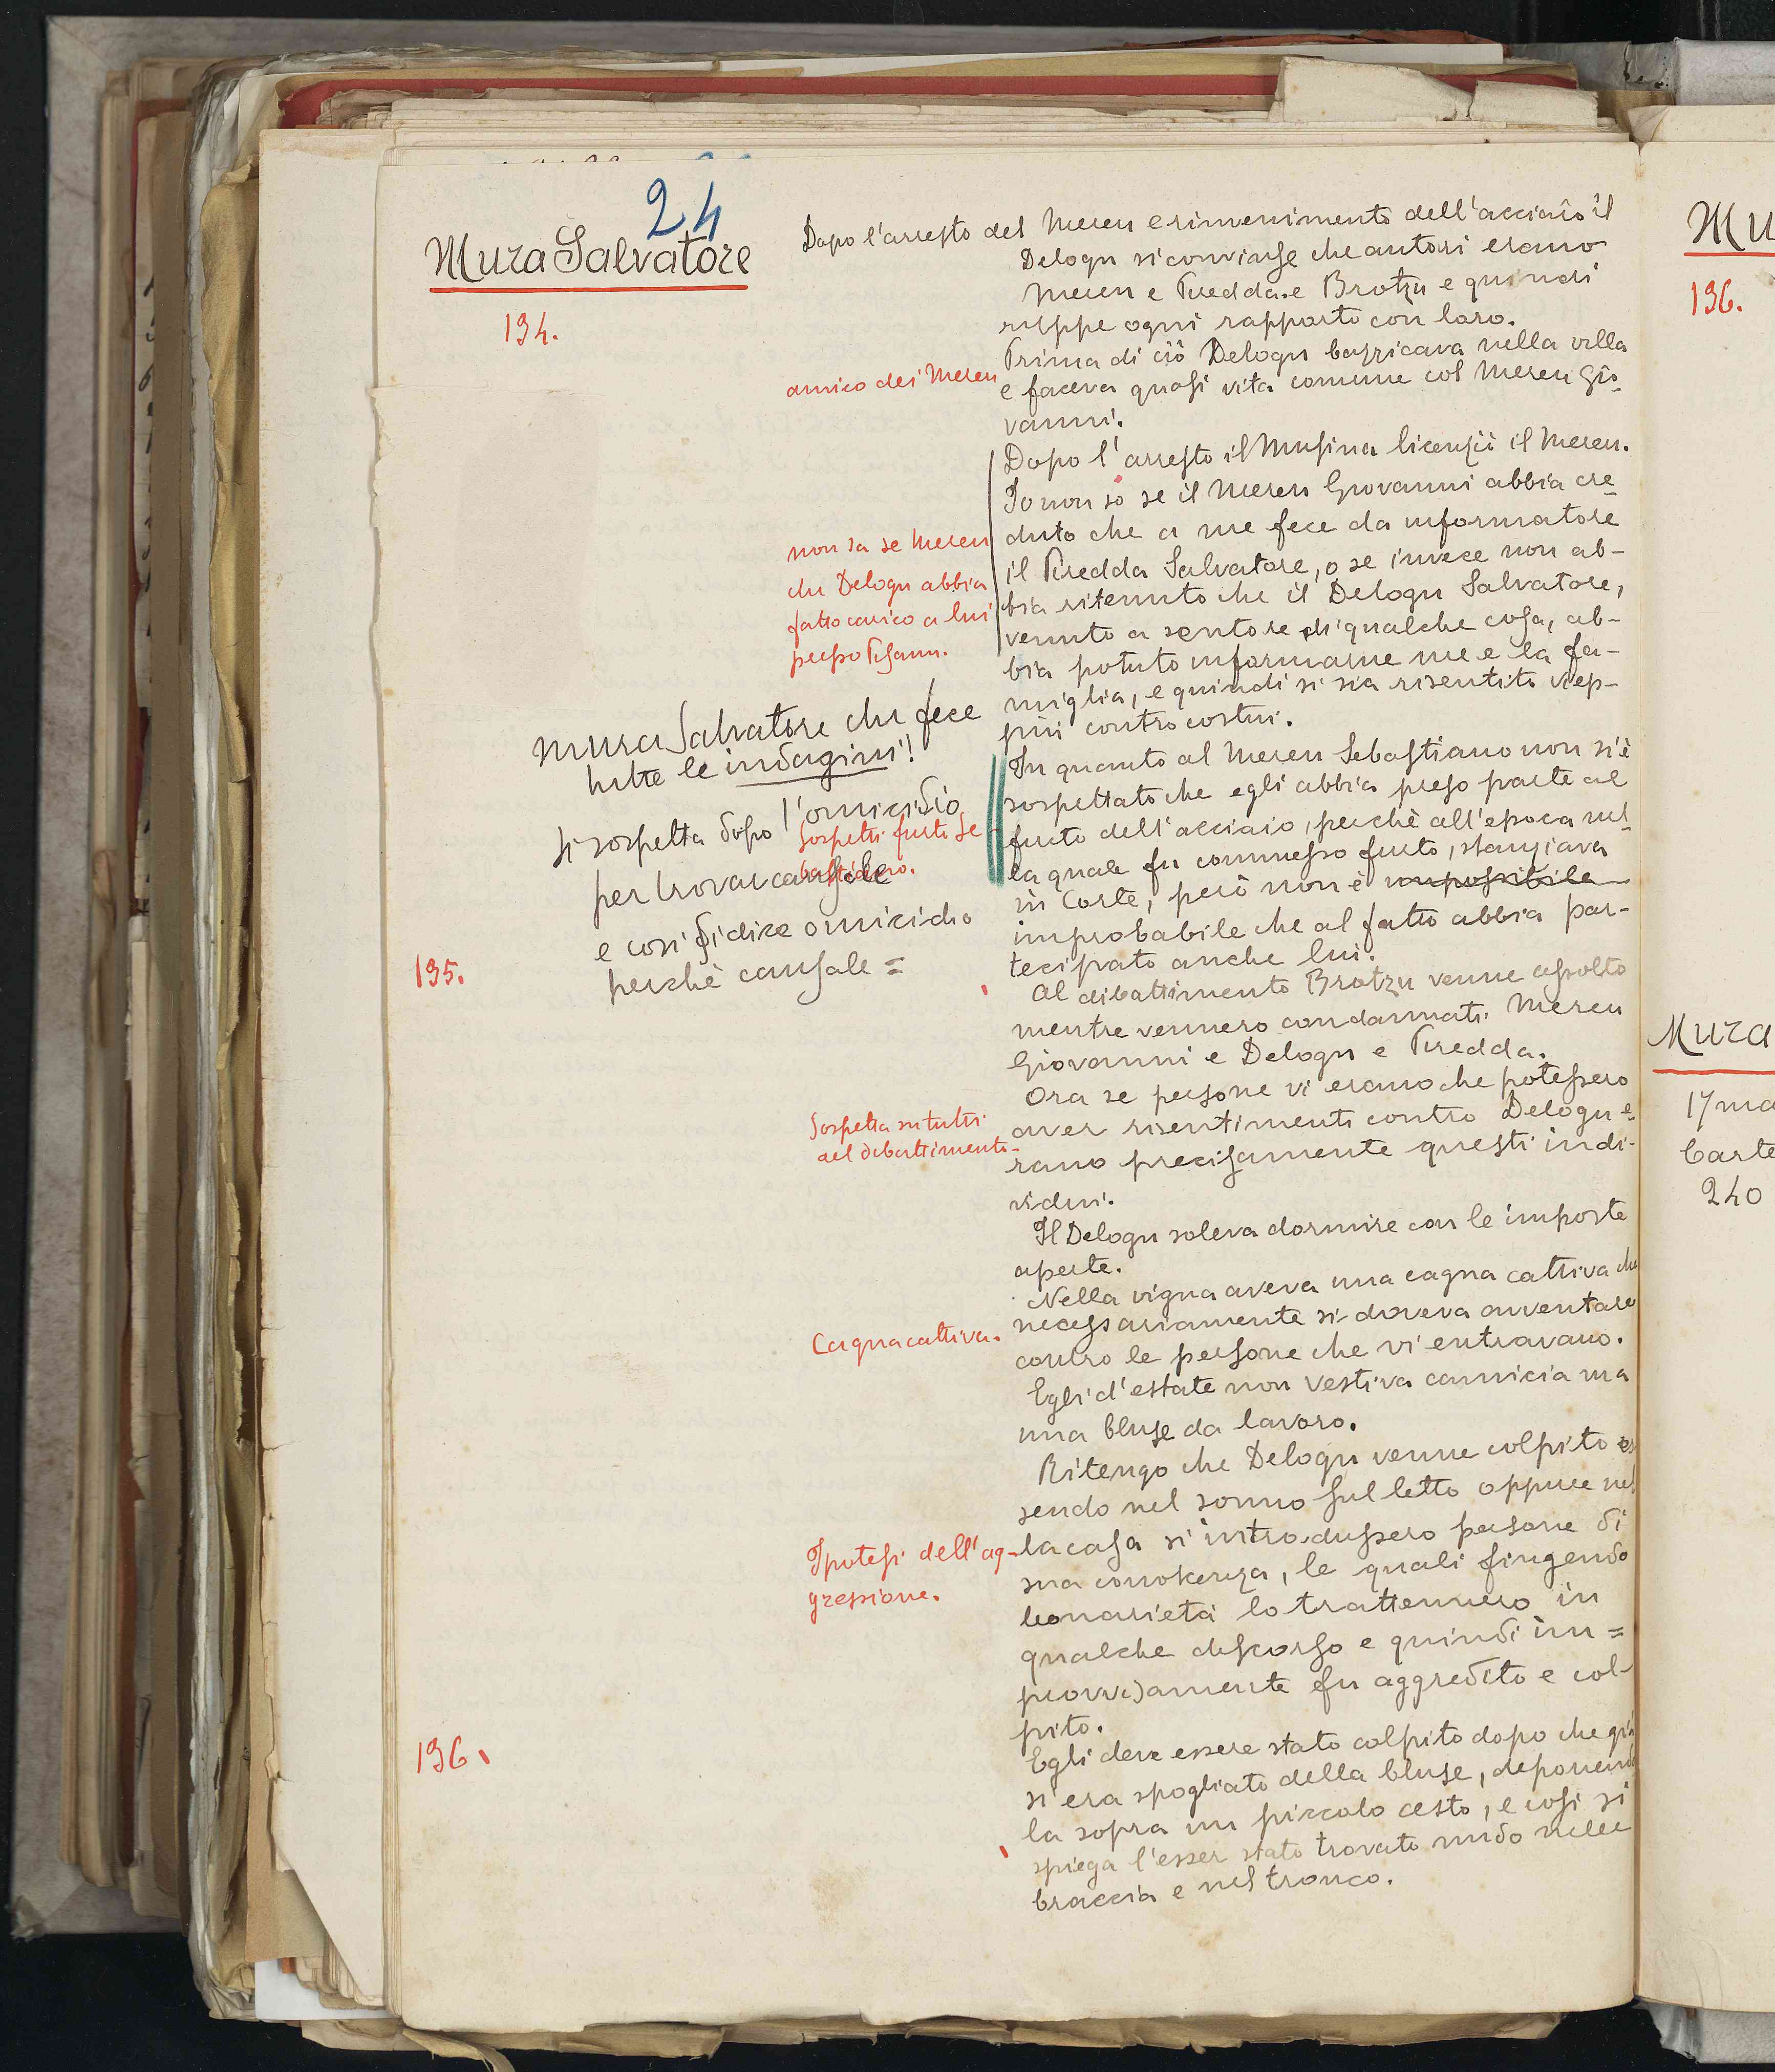 24
Mura Salvatore
134.
Dopo l'arresto del Mereu e rinvenimento dell'acciaio il
Delogu si convinse che autori erano
Mereu e Piredda e Brotzu e quindi
ruppe ogni rapporto con loro.
Prima di ciò Delogu bazzicava nella villa
amico dei Mereu
e faceva quasi vita comune col Mereu Gio-
vanni.
Dopo l'arresto il Musina licenziò il Mereu.
Io non so se il Mereu Giovanni abbia cre-
duto che a me fece da informatore
il Piredda Salvatore, o se invece non ab-
bia ritenuto che il Delogu Salvatore,
venuto a sentore di qualche cosa, ab-
bia potuto informarne me e la fa-
miglia, e quindi si sia risentito viep-
più contro costui.
non sa se Mereu
che Delogu abbia
fatto carico a lui
presso Pisanu.
Mura Salvatore che fece
tutte le indagini!
Si sospetta dopo l'omicidio
per trovar causale
e così si dice omicidio
perchè causale =
sospetti furto Se-
bastiano.
In quanto al Mereu Sebastiano non si è
sospettato che egli abbia preso parte al
furto dell'acciaio, perchè all'epoca nel-
la quale fu commesso furto, stanziava
in Corte, però non è impossibile
improbabile che al fatto abbia par-
tecipato anche lui.
135.
Al dibattimento Brotzu venne assolto
mentre vennero condannati Mereu
Giovanni e Delogu e Piredda.
Ora se persone vi erano che potessero
aver risentimenti contro Delogu e-
rano precisamente questi indi-
vidui.
Sospetta su tutti
del dibattimento-
Il Delogu soleva dormire con le imposte
aperte.
Nella vigna aveva una cagna cattiva che
necessariamente si doveva avventare
contro le persone che vi entravano.
Cagna cattiva.
Egli d'estate non vestiva camicia ma
una bluse da lavoro.
Ritengo che Delogu venne colpito es
sendo nel sonno sul letto oppure nel
la casa si introdussero persone di
sua conoscenza, le quali fingendo
bonarietà lo trattennero in
qualche discorso e quindi im=
provvisamente fu aggredito e col-
pito.
Ipotesi dell'ag-
gressione.
136.
Egli deve essere stato colpito dopo che già
si era spogliato della bluse, deponendo
la sopra un piccolo cesto, e così si
spiega l'esser stato trovato nudo nelle
braccia e nel tronco.
Mu
136.
Mura
17 ma
Carte
240